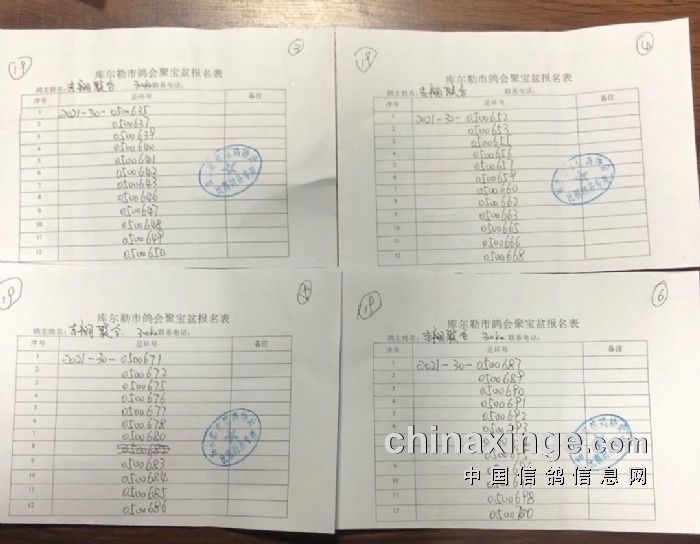 19
3
库尔勒市鸽会聚宝盆报名表
鸽主姓名：吉翔联合 300km 联系电话：
序号 足环号 备注
1 2021-30-0500635
2 0500637
3 0500639
4 0500640
5 0500641
6 0500642
7 0500643
8 0500646
9 0500647
10 0500648
11 0500649
12 0500650
19
4
库尔勒市鸽会聚宝盆报名表
鸽主姓名：吉翔联合 联系电话：
序号 足环号 备注
1 2021-30-0500652
2 0500653
3
4 0500656
5 0500657
6 0500659
7 0500660
8 0500662
9 0500663
10 0500665
11 0500666
12 0500668
19
库尔勒市鸽会聚宝盆报名表
鸽主姓名：吉翔联合 300km 联系电话：
序号 足环号 备注
1 2021-30-0500671
2 0500672
3 0500675
4 0500676
5 0500677
6 0500678
7 0500680
8 0500682
9 0500683
10 0500684
11 0500685
12 0500686
19
6
库尔勒市鸽会聚宝盆报名表
鸽主姓名：吉翔联合 300km 联系电话：
序号 足环号 备注
1 2021-30-0500687
2 0500689
3 0500690
4 0500691
5 0500692
6 0500693
7
8
9
10
11 0500698
12 0500700
chinaxinge.com
中国信鸽信息网